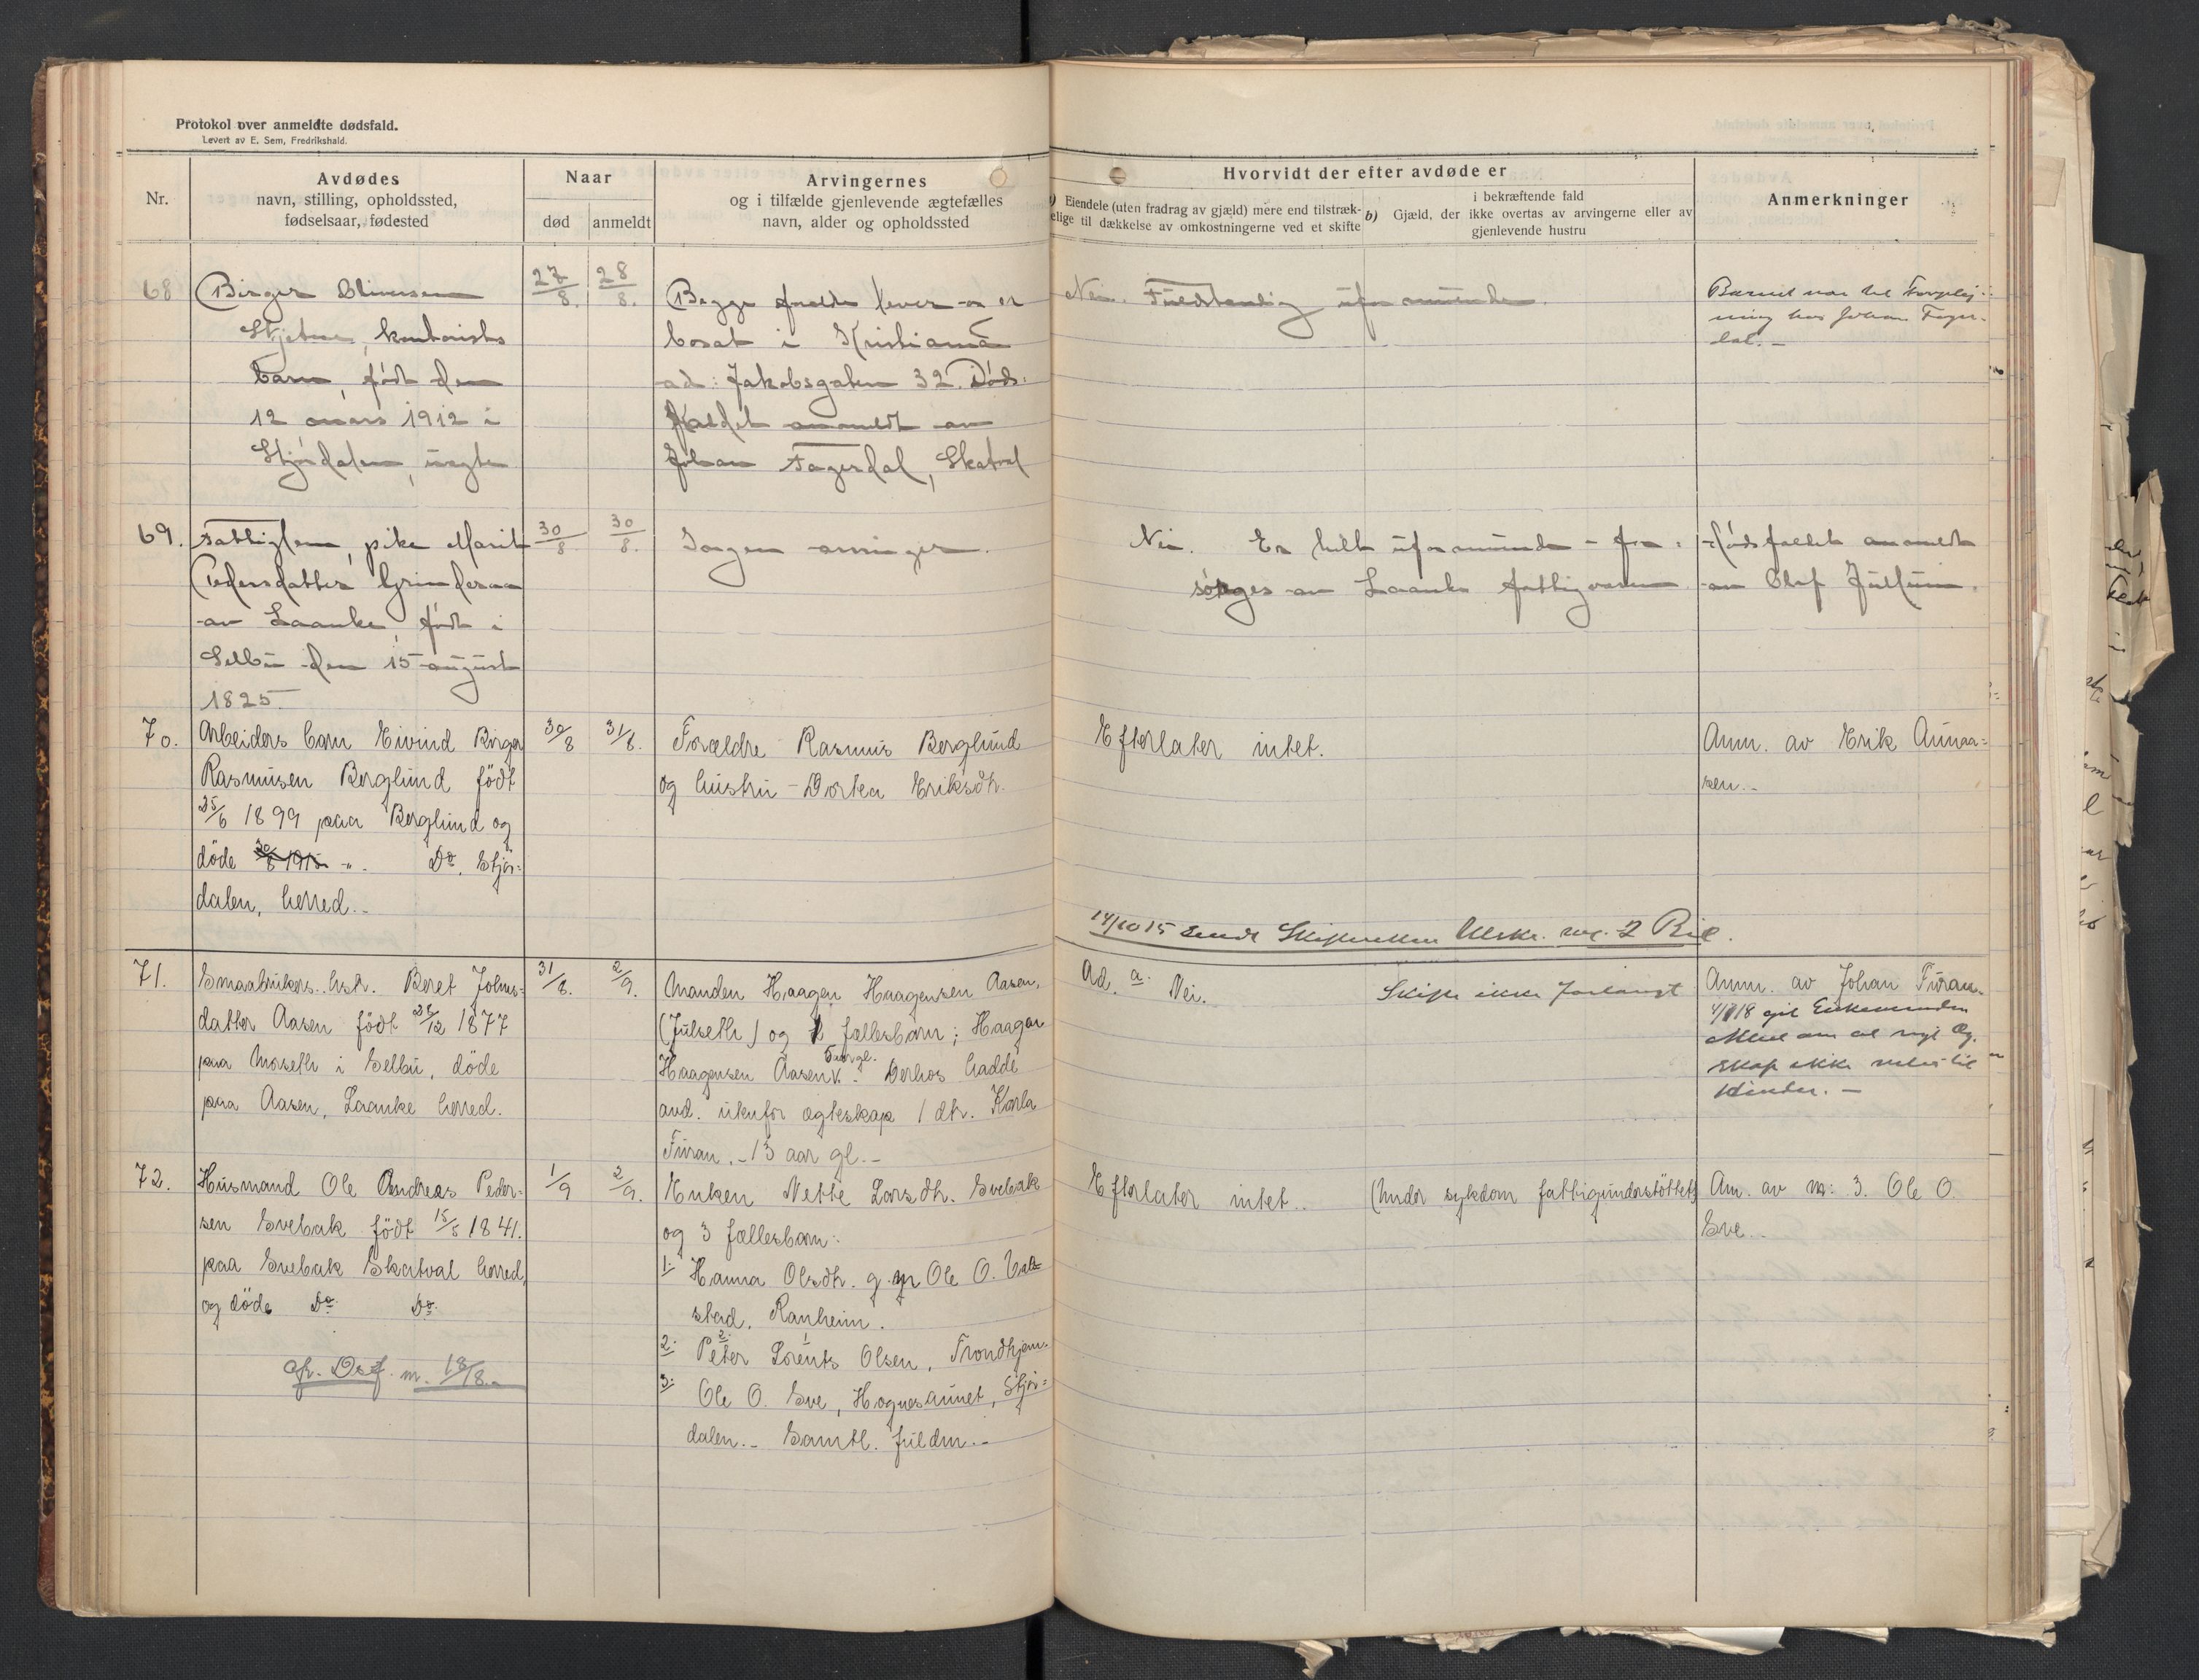 Protokol over anmeldte dødsfald.
Levert av E. Sem, Fredrikshald.
Nr.
Avdødes
navn, stilling, opholdssted,
fødselsaar, fødested
Naar
død
anmeldt
Arvingernes
og i tilfælde gjenlevende ægtefælles
navn, alder og opholdssted
Hvorvidt der efter avdøde er
Eiendele (uten fradrag av gjæld) mere end tilstræk-
elige til dækkelse av omkostningerne ved et skifte
b) Gjæld, der
i bekræftende fald
ikke overtas av arvingerne eller av
gjenlevende hustru
Anmerkninger
68
Birger Oliversen
kontorists
barn, født den
12 mars 1912 i
Stjørdalen, uegte
27/8.
28/8.
Begge foreldre lever og er
bosat i Kristiania
ad: Jakobsgaten 32. Døds-
faldet anmeldt av
Johan Fagerdal, Skatval
Nei. Fuldstendig uformuende.
Barnet var til Forplei-
ning hos Johan Fager-
dal.-
69.
Fattiglem, pike Marit
Pedersdatter Grinderaa
av Laanke, født i
Selbu den 15 august
1825.
30/8.
30/8.
Ingen arvinger.
Nei. Er helt uformuende - for-
sørges av Laanke fattigvæsen
Dødsfaldet anmeldt
av Olaf Jullum.
70.
Arbeiders barn Eivind Birger
Rasmusen Berglund født
25/6 1899 paa Berglund og
döde 30/8 1915 -"- Do. Stjör-
dalen, herred.-
30/8
31/8.
Forældre Rasmus Berglund
og hustru - Dortea Eriksdtr.
Efterlater intet.
Anm. av Erik Aunaa-
sen.-
14/10 15 sendt Skifteretten Utskr. m. 2 Bil.
71.
Smaabrukers. hstr. Beret Johns-
datter Aasen født 26/12 1877
paa Moseth i Selbu, döde
paa Aasen, Laanke herred.
31/8.
2/9.
Manden Haagen Haagensen Aasen,
(Julseth) og 1 fællesbarn; Haagen
Haagensen Aasen 5 aar gl. Derhos hadde
avd. utenfor ægteskap 1 dtr. Karla
Furan. - 13 aar gl.-
Ad. a. Nei.
Skifte ikke forlangt
Anm. av Johan Furan.
git Enkemanden
Attest om at nyt Æg-
skap ikke
hinder.-
72.
Husmand Ole Andreas Peder-
sen Svebak født 15/5 1841.
paa Svebak Skatval herred,
og döde Do. Do.
1/9
2/9.
Enken Nette Larsdtr. Svebak
og 3 fællesbarn:
1. Hanna Olsdtr. g. m Ole O. Val-
stad. Ranheim.
2: Peter Lorents Olsen, Trondhjem.
3: Ole O. Sve, Hognesaunet, Stjör-
dalen.- Samtl. fuldm.-
Efterlater intet..
(Under sykdom fattigunderstöttet)
Am. av nr: 3. Ole O.
Sve..